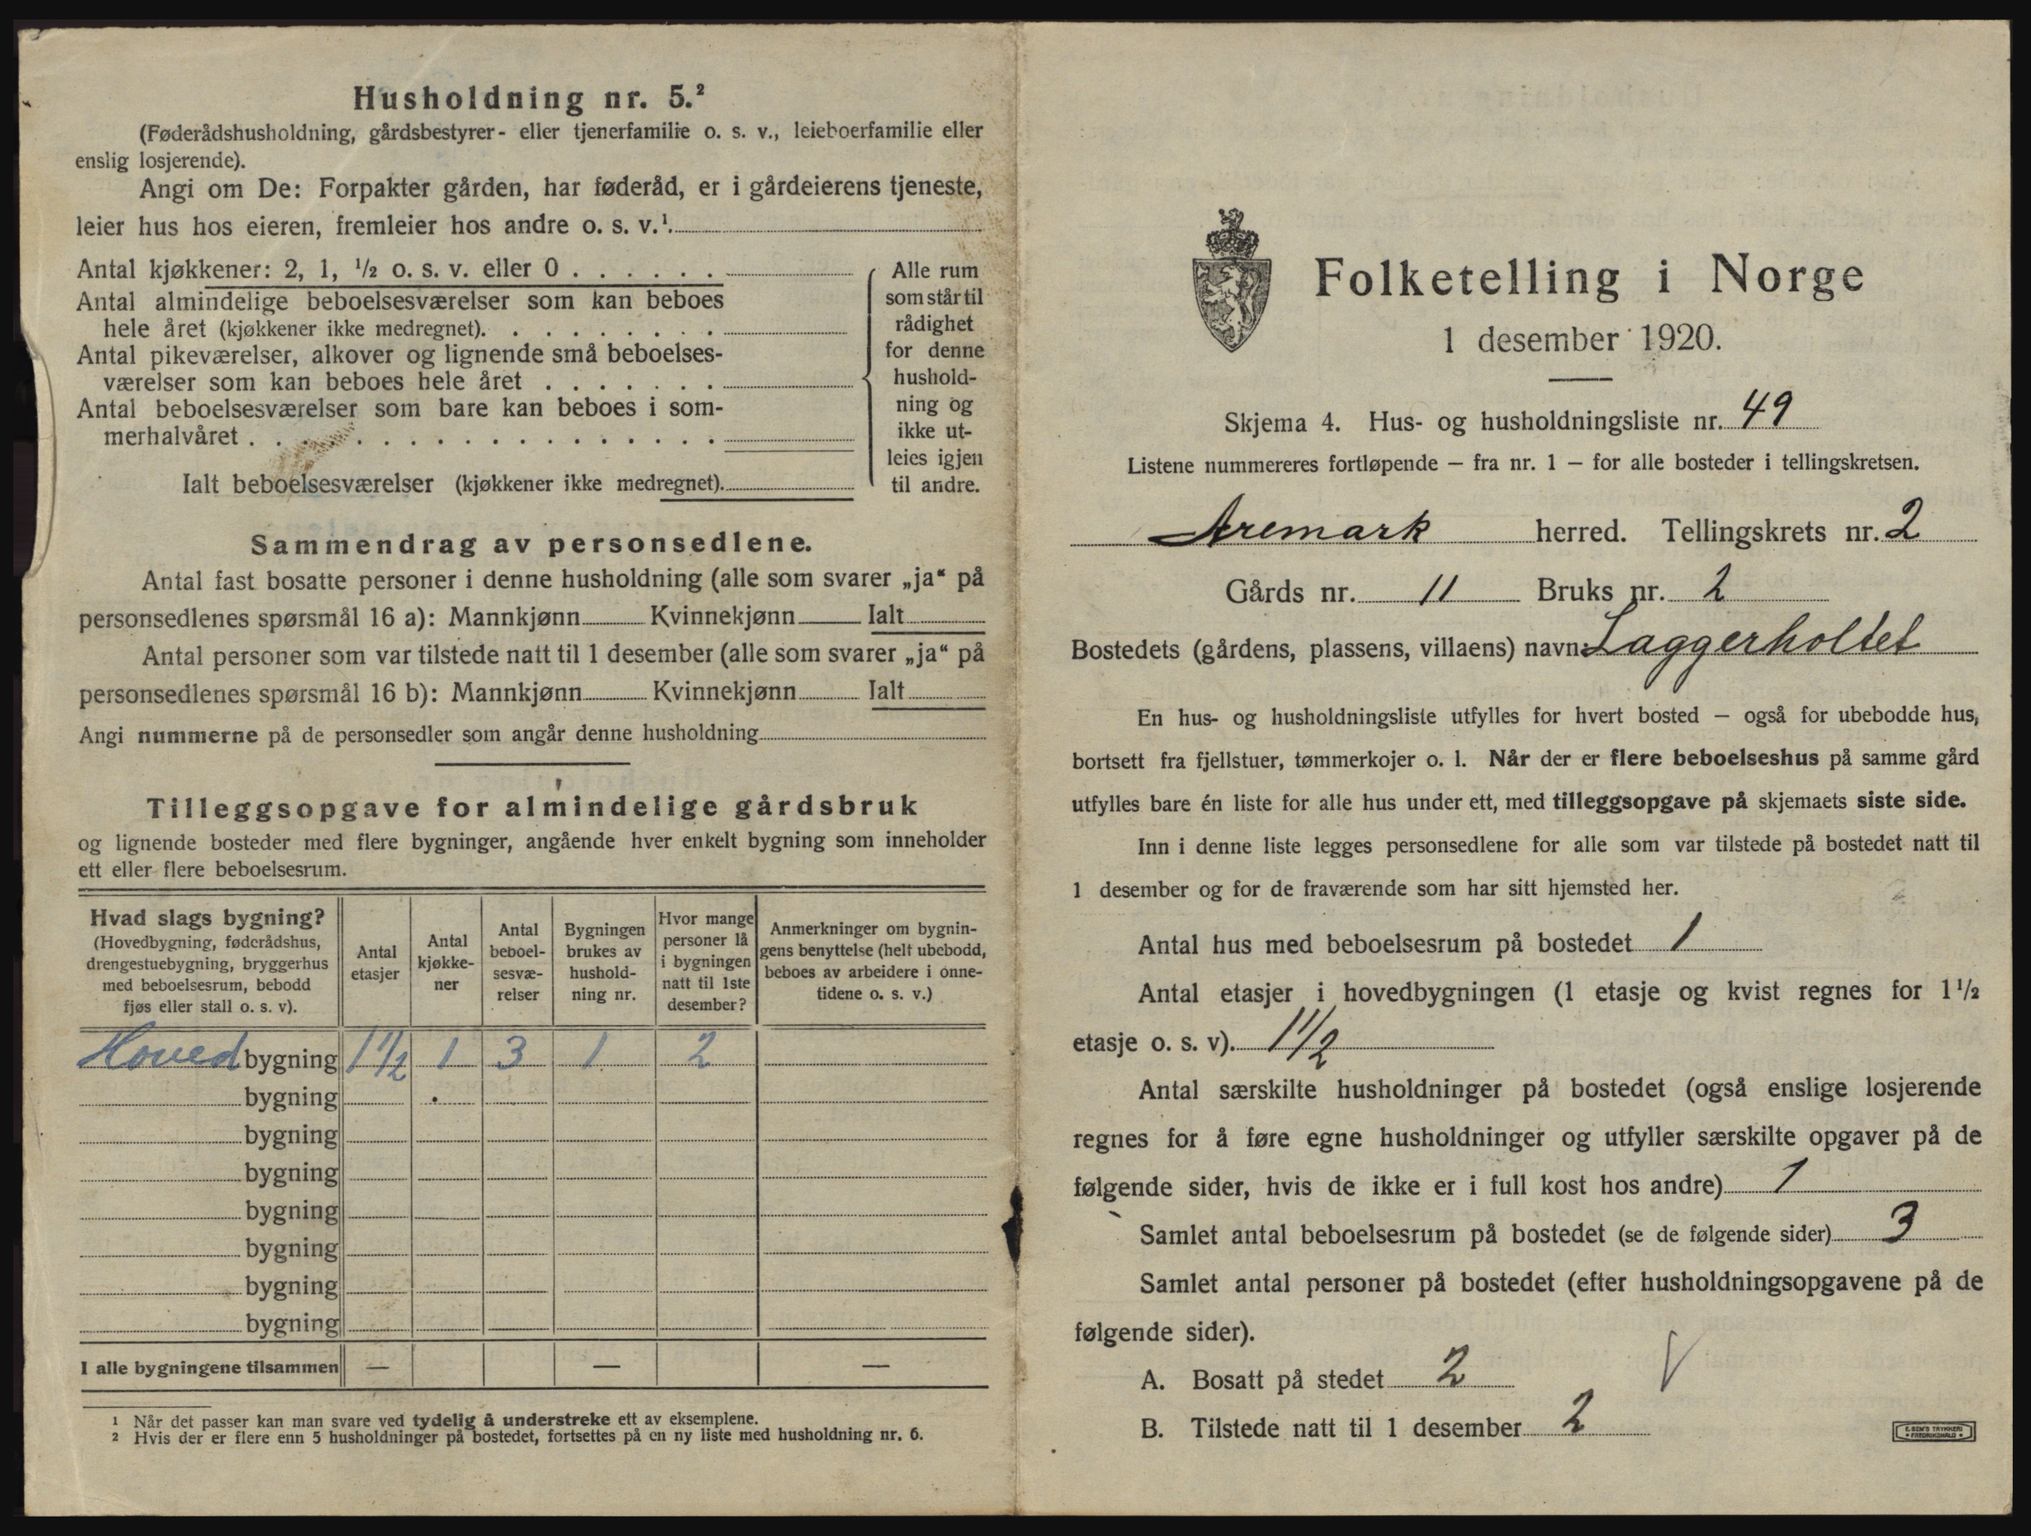 Husholdning nr. 5.²
(Føderådshusholdning, gårdsbestyrer- eller tjenerfamilie o. s. v., leieboerfamilie eller
enslig losjerende).
Angi om De: Forpakter gården, har føderåd, er i gårdeierens tjeneste,
leier hus hos eieren, fremleier hos andre o. s. v.¹.
Antal kjøkkener: 2, 1, ½ o. s. v. eller 0 . . . . . .
Antal almindelige beboelsesværelser som kan beboes
hele året (kjøkkener ikke medregnet). . . . . . . . .
Antal pikeværelser, alkover og lignende små beboelses-
værelser som kan beboes hele året . . . . . . .
Antal beboelsesværelser som bare kan beboes i som-
merhalvåret . . . . . . . . . . . . . . . . . .
Ialt beboelsesværelser (kjøkkener ikke medregnet).
Alle rum
som står til
rådighet
for denne
hushold-
ning og
ikke ut-
leies igjen
til andre.
Sammendrag av personsedlene.
Antal fast bosatte personer i denne husholdning (alle som svarer „ja“ på
personsedlenes spørsmål 16 a): Mannkjønn Kvinnekjønn Ialt
Antal personer som var tilstede natt til 1 desember (alle som svarer „ja“ på
personsedlenes spørsmål 16 b): Mannkjønn Kvinnekjønn Ialt
Angi nummerne på de personsedler som angår denne husholdning
Tilleggsopgave for almindelige gårdsbruk
og lignende bosteder med flere bygninger, angående hver enkelt bygning som inneholder
ett eller flere beboelsesrum.
Hvad slags bygning?
(Hovedbygning, føderådshus,
drengestuebygning, bryggerhus
med beboelsesrum, bebodd
fjøs eller stall o. s. v).
Antal
etasjer
Antal
kjøkke-
ner
Antal
beboel-
sesvæ-
relser
Bygningen
brukes av
hushold-
ning nr.
Hvor mange
personer lå
i bygningen
natt til 1ste
desember?
Anmerkninger om bygnin-
gens benyttelse (helt ubebodd,
beboes av arbeidere i onne-
tidene o. s. v.)
Hoved bygning 1½ 1 3 1 2
bygning
bygning
bygning
bygning
bygning
bygning
bygning
I alle bygningene tilsammen — — —
¹ Når det passer kan man svare ved tydelig å understreke ett av eksemplene.
² Hvis der er flere enn 5 husholdninger på bostedet, fortsettes på en ny liste med husholdning nr. 6.
Folketelling i Norge
1 desember 1920.
Skjema 4. Hus- og husholdningsliste nr. 49
Listene nummereres fortløpende – fra nr. 1 – for alle bosteder i tellingskretsen.
Aremark herred. Tellingskrets nr. 2
Gårds nr. 11 Bruks nr. 2
Bostedets (gårdens, plassens, villaens) navn: Laggerholtet
En hus- og husholdningsliste utfylles for hvert bosted – også for ubebodde hus,
bortsett fra fjellstuer, tømmerkojer o. l. Når der er flere beboelseshus på samme gård
utfylles bare én liste for alle hus under ett, med tilleggsopgave på skjemaets siste side.
Inn i denne liste legges personsedlene for alle som var tilstede på bostedet natt til
1 desember og for de fraværende som har sitt hjemsted her.
Antal hus med beboelsesrum på bostedet 1
Antal etasjer i hovedbygningen (1 etasje og kvist regnes for 1½
etasje o. s. v). 1½
Antal særskilte husholdninger på bostedet (også enslige losjerende
regnes for å føre egne husholdninger og utfyller særskilte opgaver på de
følgende sider, hvis de ikke er i full kost hos andre) 1
Samlet antal beboelsesrum på bostedet (se de følgende sider) 3
Samlet antal personer på bostedet (efter husholdningsopgavene på de
følgende sider).
A. Bosatt på stedet 2
B. Tilstede natt til 1 desember 2